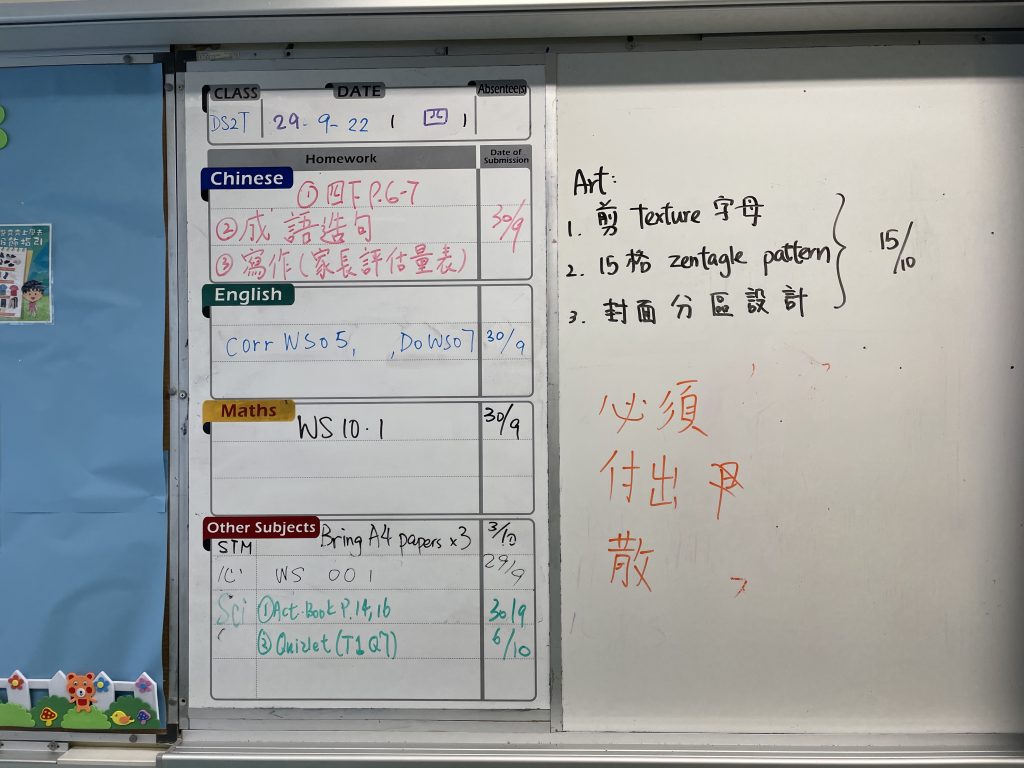 CLASS DATE Absentee(s)
DS2T 29-9-22 ( 四 )
Homework Date of Submission
Chinese
① 四下 P.6-7
② 成語造句 30/9
③ 寫作(家長評估量表)
English
Corr WS05, , Do WS07 30/9
Maths
WS 10.1 30/9
Other Subjects
STM Bring A4 papers x3 3/10
心 WS 001 29/9
Sci ① Act.Book P.14,16 30/9
② Quizlet (T1Q7) 6/10
Art:
1. 剪 texture 字母
2. 15格 zentagle pattern 15/10
3. 封面分區設計
必須
付出
散